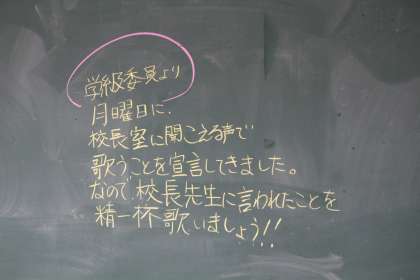 学級委員より
月曜日に、
校長室に聞こえる声で
歌うことを宣言してきました。
なので、校長先生に言われたことを
精一杯歌いましょう!!